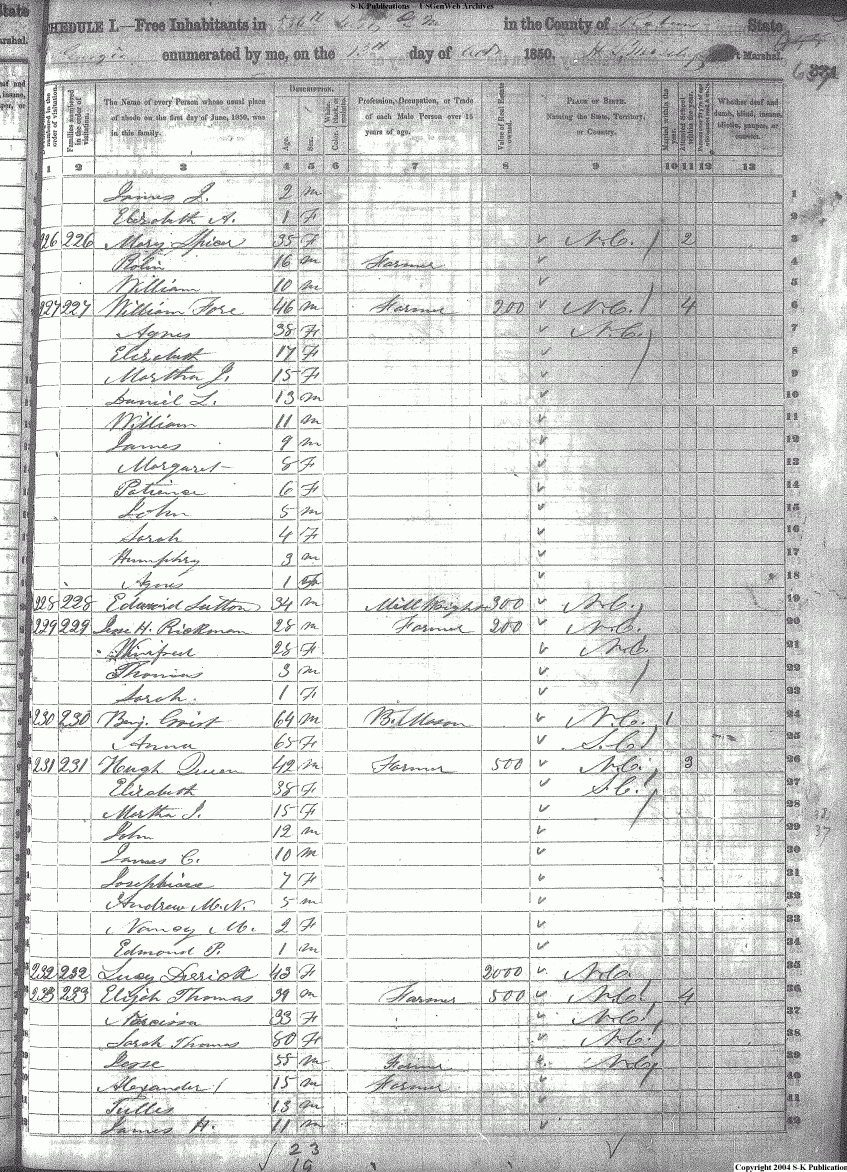 S-K Publications - USGenWeb Archives
State
SCHEDULE I.—Free Inhabitants in 536th in the County of State
Marshal. enumerated by me, on the 13th day of 1850. Marshal.
DESCRIPTION.
The Name of every Person whose usual place of abode on the first day of June, 1850, was in this family.
Families numbered in the order of visitation.
Age.
Sex.
Profession, Occupation, or Trade of each Male Person over 15 years of age.
Value of Real Estate owned.
PLACE OF BIRTH. Naming the State, Territory, or Country.
Married within the year.
Attended School within the year.
Whether deaf and dumb, blind, insane, idiotic, pauper, or convict.
1 2 3 4 5 6 7 8 9 10 11 12 13
James J. 2 m 1
Elizabeth A. 1 F 2
226 226 Mary Spicer 35 F N.C. 2 3
16 m Farmer 4
William 10 m 5
227 227 William Fore 46 m Farmer 200 N.C. 4 6
Agnes 38 F N.C. 7
Elizabeth 17 F 8
Martha J. 15 F 9
Daniel L. 13 m 10
William 11 m 11
James 9 m 12
Margaret 8 F 13
Patience 6 F 14
John 5 m 15
Sarah 4 F 16
Humphry 3 m 17
Agnes 1 18
228 228 Edward Sutton 34 m Mill Wright 300 N.C. 19
229 229 Jesse H. Rickman 28 m Farmer 200 N.C. 20
Winifred 28 F N.C. 21
Thomas 3 m 22
Sarah. 1 F 23
230 230 Benj. Grist 64 m B. Mason N.C. 1 24
Anna 65 F S.C. 25
231 231 Hugh Queen 42 m Farmer 500 N.C. 3 26
Elizabeth 38 F S.C. 27
Martha J. 15 F 28
John 12 m 29
James C. 10 m 30
Josephine 7 F 31
Andrew M.N. 5 m 32
Nancy M. 2 F 33
Edmond P. 1 m 34
232 232 Lucy Derick 43 F 2000 N.C. 35
233 233 Elijah Thomas 39 m Farmer 500 N.C. 4 36
Narcissa 33 F N.C. 37
Sarah Thomas 80 F N.C. 38
Jesse 55 m Farmer N.C. 39
Alexander 15 m Farmer 40
Tullis 13 m 41
James H. 11 m 42
23
19
Copyright 2004 S-K Publications